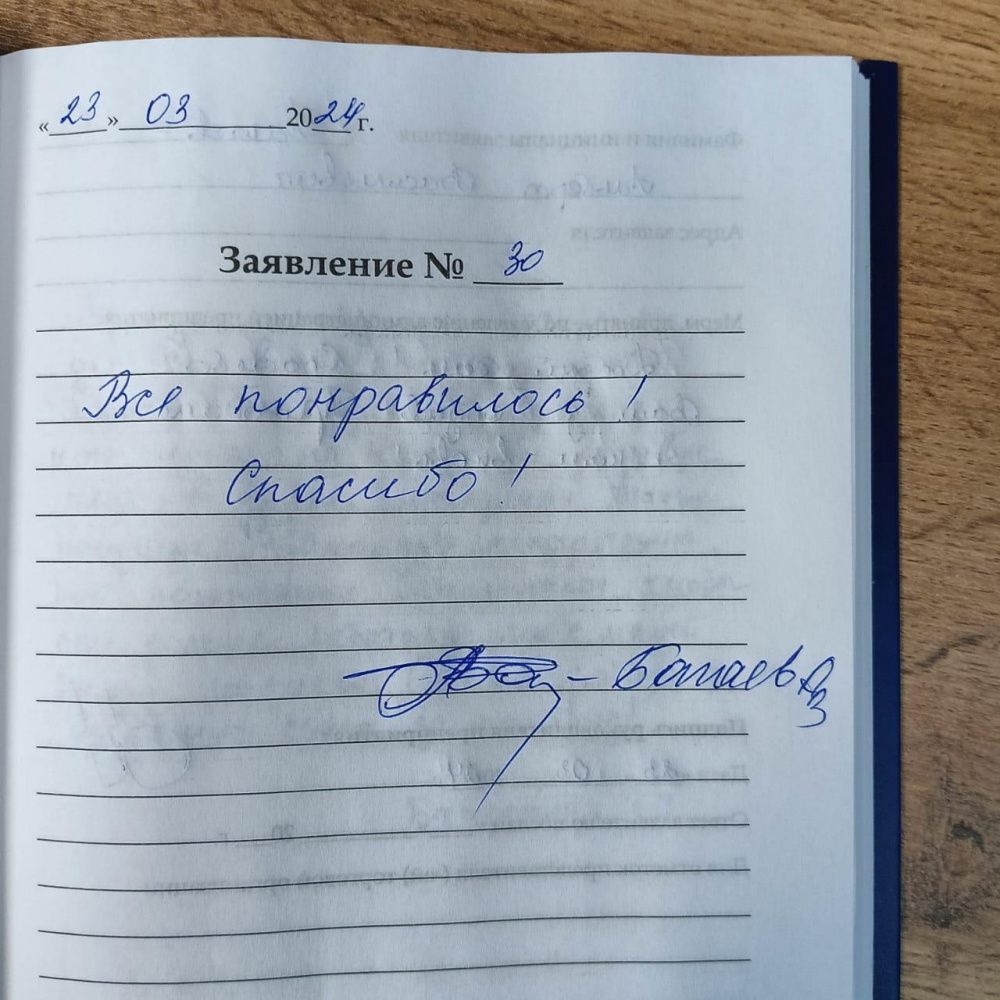 «23» 03 2024 г.
Заявление № 30
Все понравилось!
Спасибо!